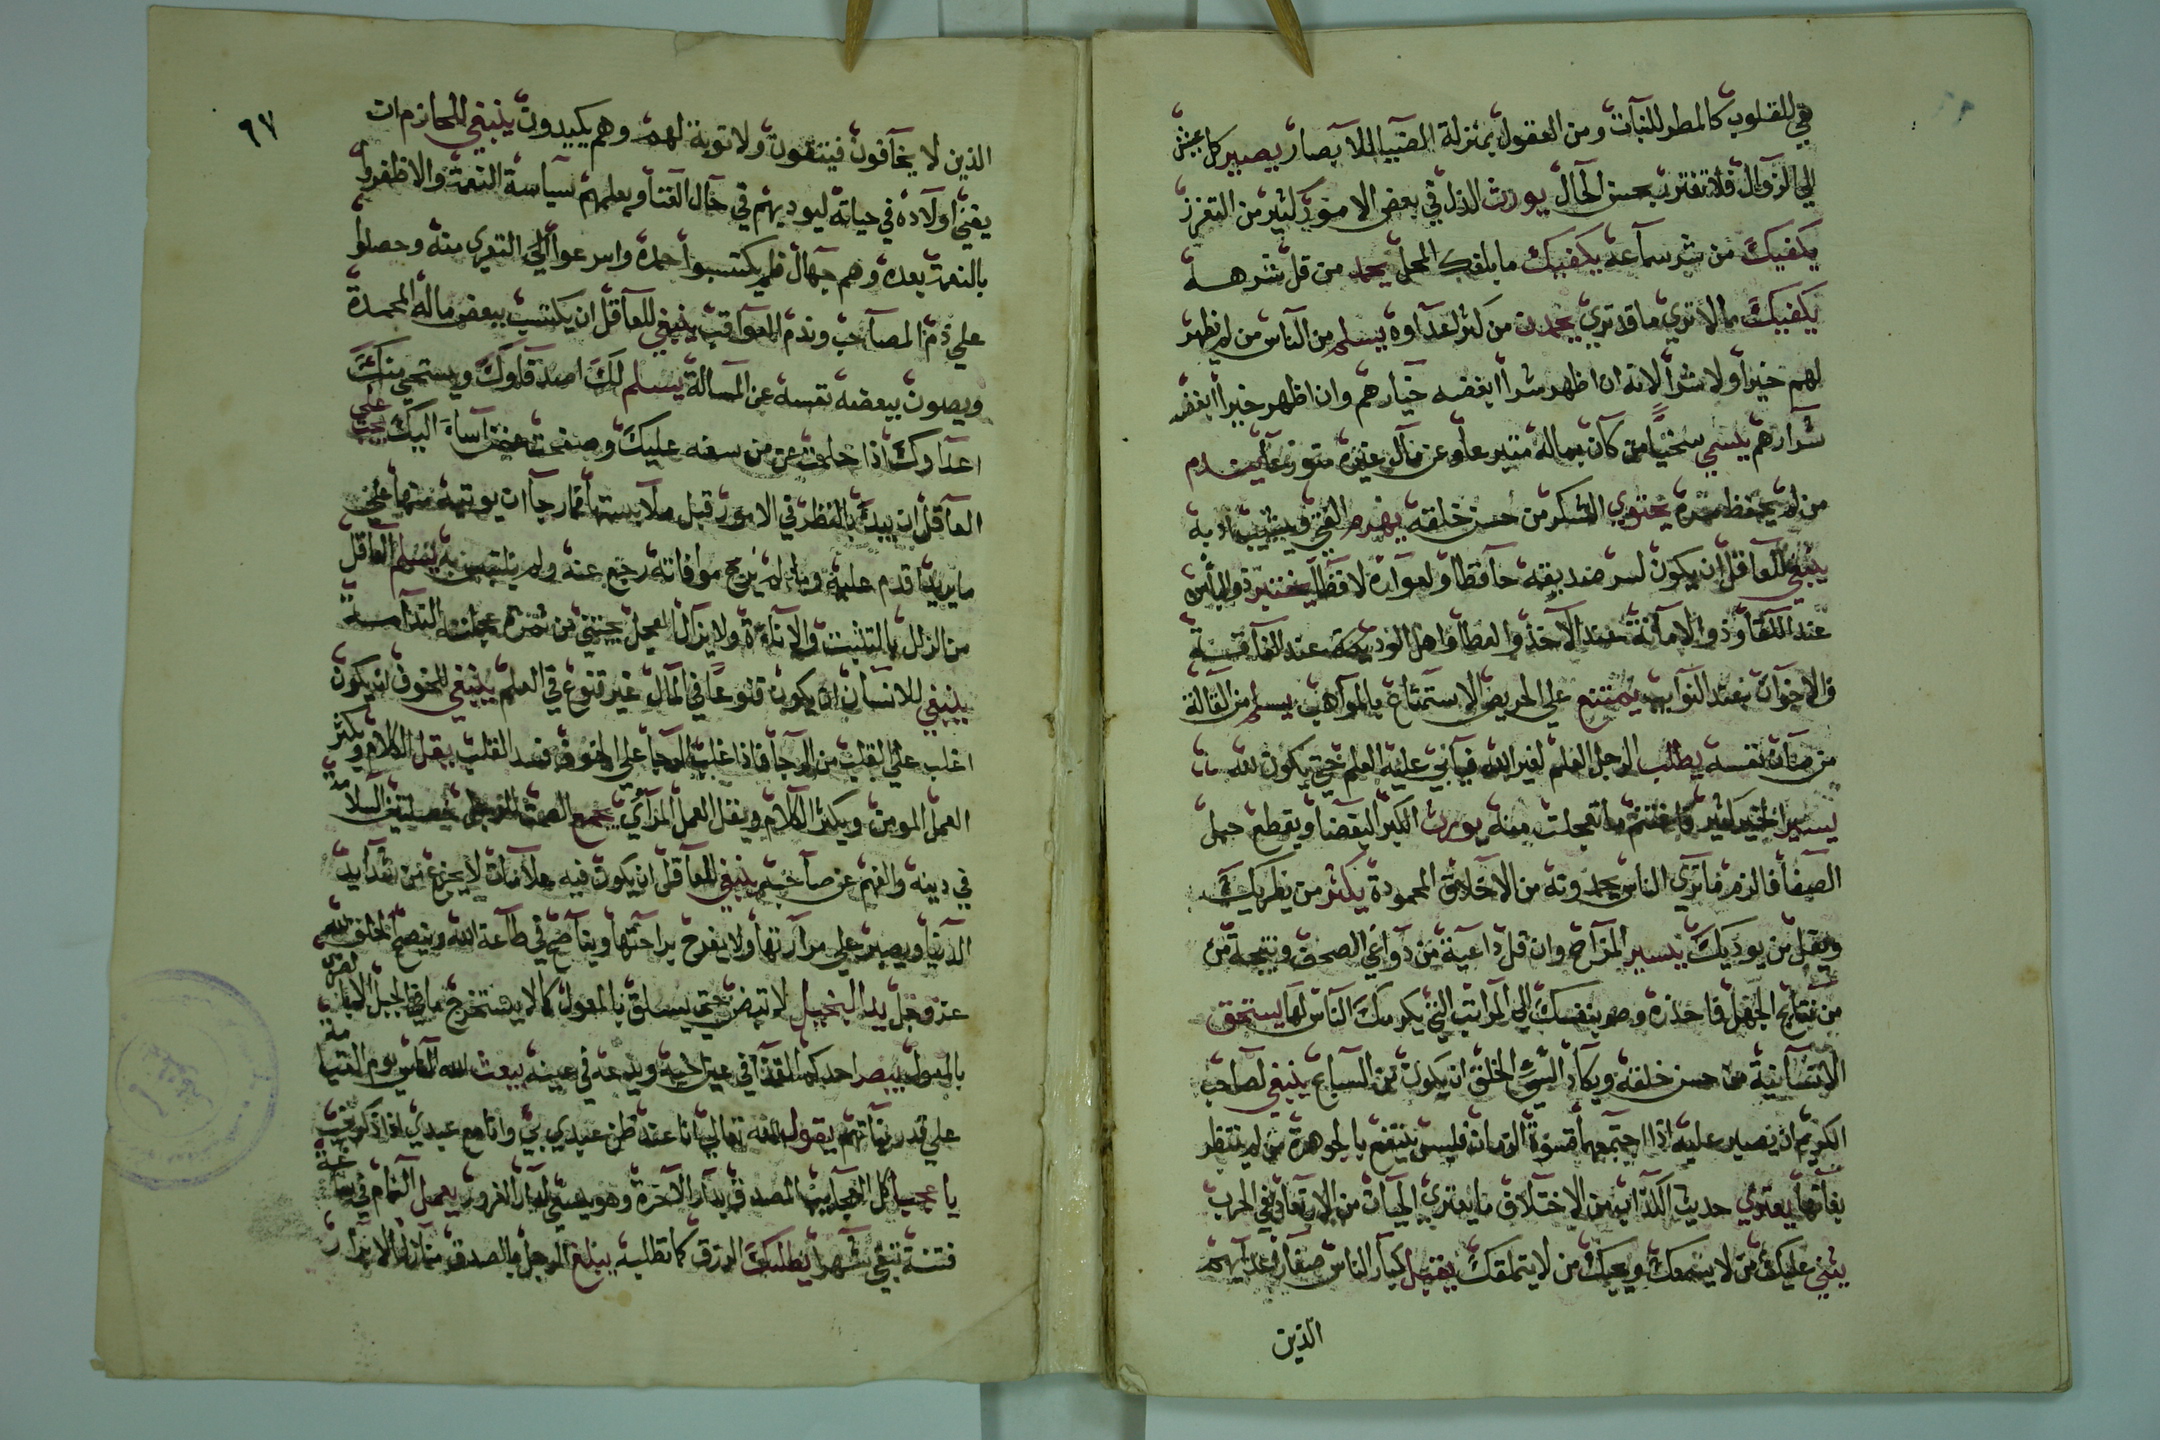 هي للقلوب كالمطر للنبات ومن العقول بمنزلة الضيا للابصار يصير كل عيش
الي الزوال فلا تغتر بحسن الحال يورث الذل في بعض الامور كثير من التعزز
يكفيك من شر سماعه يكفيك ما بلغك المحل يحمد من قل شرهه
يكفيك مما لا تري ما قد تري يحمد من كثر اعداوه يسلم من الناس من لم يظهر
لهم خيرا ولا شرا لانه ان اظهر شرا ابغضه خيارهم وان اظهر خيرا ابغضه
شرارهم يسمي سخيا من كان بماله متبرعا وعن مال غيره متورعا يندم
من لم يحفظ يحتوي الشكر من حسن خلقه يهرم الفتي ويشيب
ينبغي للعاقل ان يكون لسر صديقه حافظا ولعواره لافظا يختبر ذو الباس
عند اللقا وذو الامانة عند الاخذ والعطا واهل الود عند الفاقة
والاخوان عند النوايب يمتنع علي الحريص الاستمتاع بالمواهب يسلم من القالة
من صان نفسه يطلب الرجل العلم لغير الله فيابي عليه العلم حتي يكون لله
يسير الخير كثير فاغتنم ما تعجلت منه يورث الكبر البغضا ويقطع حبل
الصفا فالزم ما تري الناس يحمدونه من الاخلاق المحمودة يكثر من يطريك
ويقل من يوديك يسير المزاح وان قل داعية من دواعي ونتيجة من
من نتايج الجهل فاحذره وصر بنفسك الي المراتب التي يكرمك الناس لها يستحق
الانسانية من حسن خلقه ويكاد السيي الخلق ان يكون من السباع ينبغي لصاحب
الكريم ان يصبر عليه اذا قسوة الزمان فليس ينتفع بالجوهرة من لم ينتظر
حديث الكذاب من الاختلاق ما يعتري الجبان من الارتعاد في الحرب
يثني عليك من لا يسمعك ويعيبك من لا يتملقك يقتل كبار الناس صغار اعدايهم
الذين
٩٧
الذين لا يخافون فيتقون ولا توبة لهم وهم يكيدون ينبغي للحازم ان
يغني اولاده في حياته ليوديهم في حال الغنا ويعلمهم سياسة النعمة والا ظفروا
بالنعمة بعده وهم جهال فلم يكتسبوا حمده واسرعوا الي التعري منه وحصلوا
علي ذم المصاحب وندم العواقب ينبغي للعاقل ان يكتسب ببعض ماله المحمدة
ويصون ببعضه نفسه عن المسالة يسلم لك اصدقاوك ويستحي منك
اعداوك اذا حلمت عن من سفه عليك وصفحت عمن اساء اليك يجب علي
العاقل ان يبدا بالنظر في الامور قبل ملابستها فما رجا ان يوتيه منها علي
ما يريد اقدم عليه وما لم يرج موافاته رجع عنه ولم يتلبس به يسلم العاقل
من الزلل بالتثبت والاناة ولا يزال العجل يجتني من ثمرة عجلته الندامة
ينبغي للانسان ان يكون قنوعا في المال غير قنوع في العلم ينبغي للخوف ان يكون
اغلب علي القلب من الرجا فاذا غلب الرجا علي الخوف فسد القلب يقل الكلام ويكثر
العمل المومن ويكثر الكلام ويقل العمل المراي يجمع الصمت للرجل خصلتين السلامة
في دينه والفهم عن صاحبه ينبغي للعاقل ان يكون فيه علامات لا يجزع من شدايد
الدنيا ويصبر علي مرارتها ولا يفرح براحتها ويناصح في طاعة الله وينصح الخلق لله
عز وجل يدا البخيل لا تبض حتي يسلق بالمعول كما لا يستخرج ما في الجبل الا
بالمعول يبصر احدكم القذا في عين اخيه ويدعه في عينه يبعث الله الناس يوم القيامة
علي قدر نياتهم يقول الله تعالي انا عند ظن عبدي بي وانا مع عبدي اذا ذكرني
يا عجبا كل العجب للمصدق بدار الاخرة وهو يسعي لدار الغرور يعمل النمام في ساعة
فتنة تبقي شهرا يطلبك الرزق كما تطلبه يبلغ الرجل بالصدق منازل الابرار